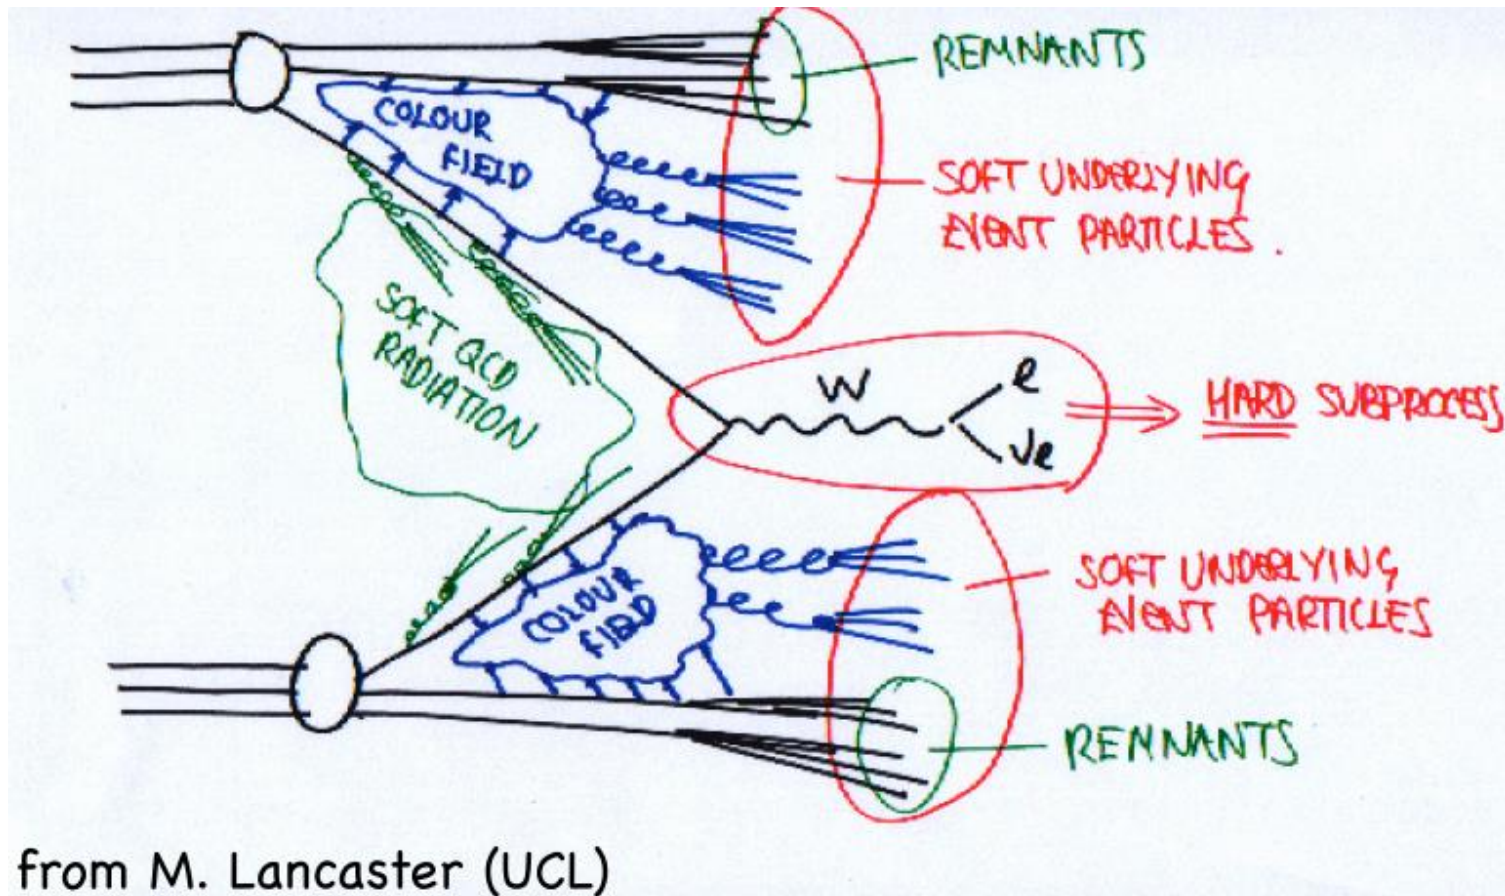 REMNANTS
COLOUR
FIELD
SOFT UNDERLYING
EVENT PARTICLES.
SOFT QCD
RADIATION
W
e
νe
HARD SUBPROCESS
COLOUR
FIELD
SOFT UNDERLYING
EVENT PARTICLES
REMNANTS
from M. Lancaster (UCL)